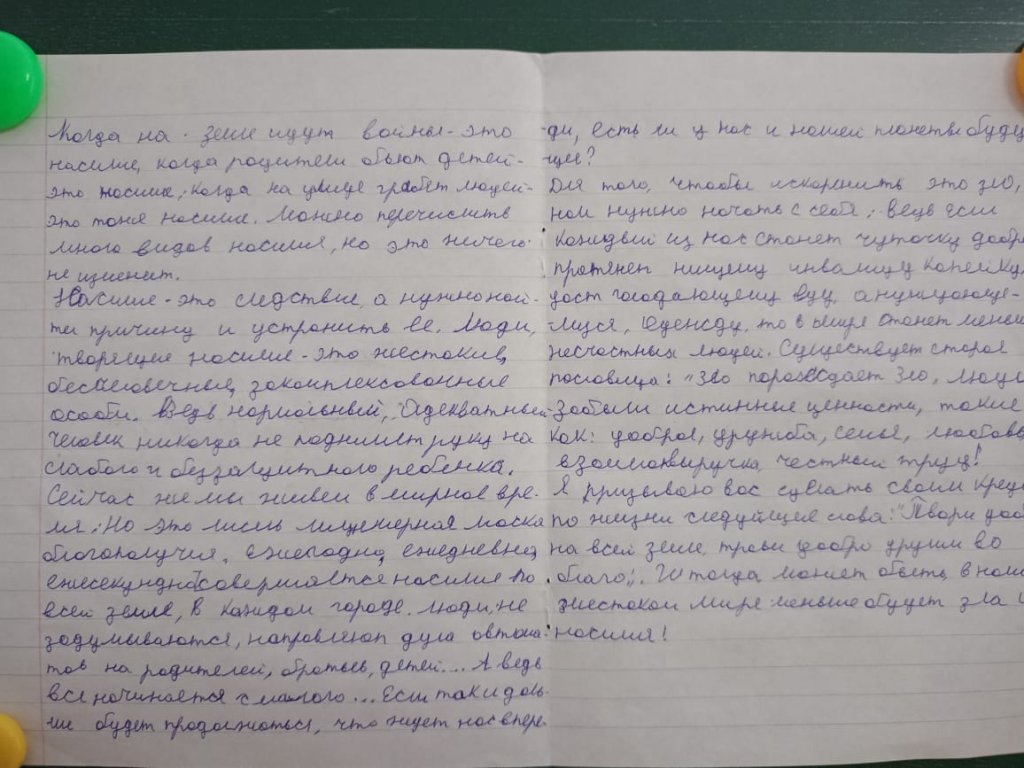 Когда на земле идут войны - это
насилие, когда родители бьют детей -
это насилие, когда на улице грабят людей -
это тоже насилие. Можно перечислить
много видов насилия, но это ничего
не изменит.
Насилие - это следствие, а нужно най-
ти причину и устранить её. Люди,
творящие насилие - это жестокие,
бесчеловечные, закомплексованные
особи. Ведь нормальный, адекватный
человек никогда не поднимет руку на
слабого и беззащитного ребёнка.
Сейчас же мы живем в мирное вре-
мя. Но это лишь лицемерная маска
благополучия. Ежегодно, ежедневно,
ежесекундно совершается насилие по
всей земле, в каждом городе. Люди, не
задумываются, направляют дула автома-
тов на родителей, братьев, детей... А ведь
всё начинается с малого... Если так и даль-
ше будет продолжаться, что ждет нас впере-
ди, есть ли у нас и нашей планеты буду
щее?
Для того, чтобы искоренить это зло,
нам нужно начать с себя. Ведь если
каждый из нас станет чуточку добр
протянет нищему инвалиду копейку,
даст голодающему еду, а нуждающе-
муся, одежду, то в мире станет мень
несчастных людей. Существует старая
пословица: "Зло порождает зло, люди
забыли истинные ценности, такие
как: доброе, дружба, семья, любовь
взаимовыручка, честный труд!
Я призываю вас сделать своим кред
по жизни следующие слова: "Твори доб
на всей земле, твори добро другим во
благо". И тогда может быть в наш
жестоком мире меньше будет зла и
насилия!